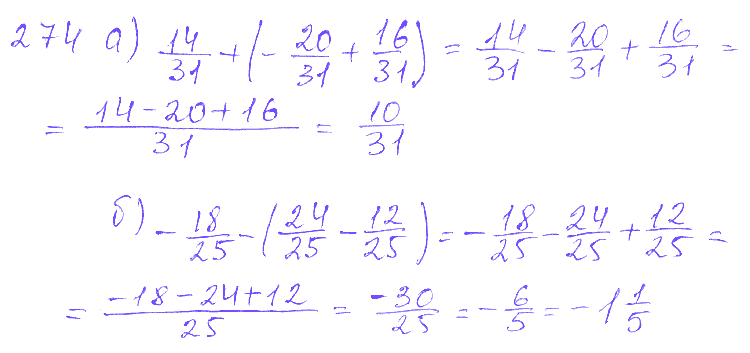 274 а) 14/31 + (- 20/31 + 16/31) = 14/31 - 20/31 + 16/31 =
= (14 - 20 + 16)/31 = 10/31
б) - 18/25 - (24/25 - 12/25) = - 18/25 - 24/25 + 12/25 =
= (-18 - 24 + 12)/25 = -30/25 = - 6/5 = -1 1/5